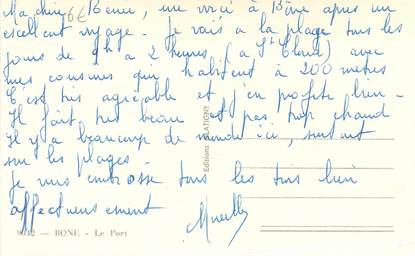 Ma chère me voici à Bône après un
excellent voyage. Je vais à la plage tous les
jours de 9h à 2 heures (à St Cloud) avec
mes cousines qui habitent à 200 mètres
C'est très agréable et j'en profite bien -
Il fait très beau et pas trop chaud
Il y a beaucoup de monde ici, surtout
sur les plages -
Je vous embrasse tous les trois bien
affectueusement
6€
Editions PLATIGNY
BONE - Le Port